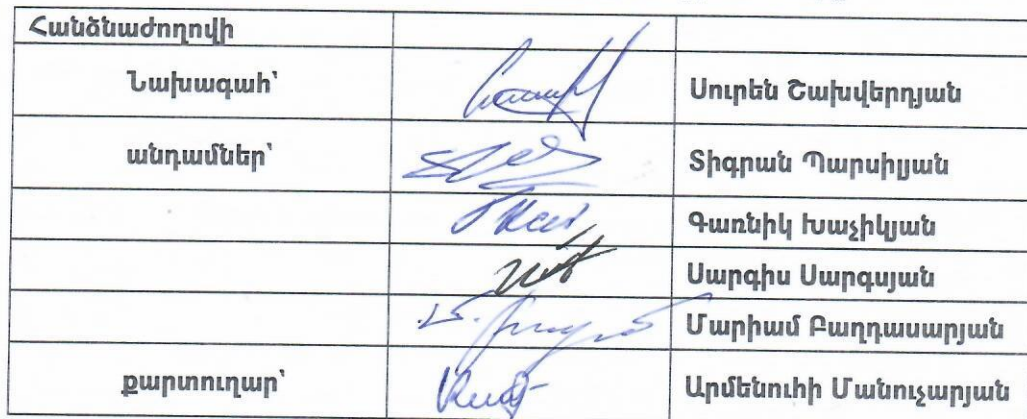 Հանձնաժողովի
Նախագահ՝ Սուրեն Շախվերդյան
անդամներ՝ Տիգրան Պարսիլյան
Գառնիկ Խաչիկյան
Սարգիս Սարգսյան
Մարիամ Բաղդասարյան
քարտուղար՝ Արմենուհի Մանուչարյան